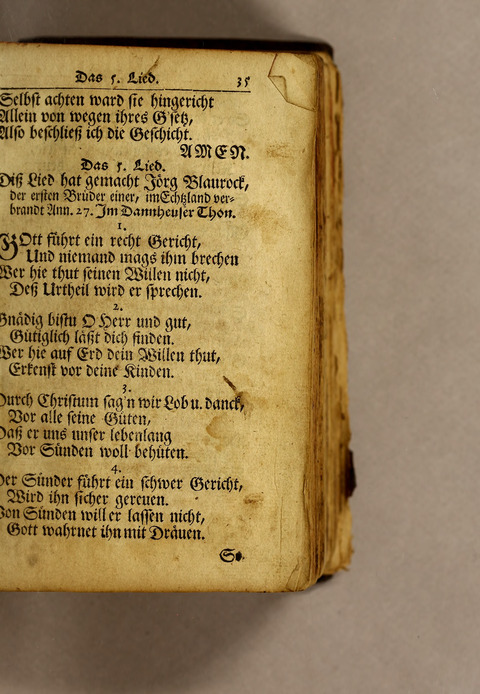 Das 5. Lied. 35
Selbst achten ward sie hingericht
Allein von wegen ihres G'setz,
Also beschließ ich die Geschicht.
AMEN.
Das 5. Lied.
Diß Lied hat gemacht Jörg Blaurock,
der ersten Brüder einer, im Echtzland ver-
brandt Ann. 27. Im Dannheuser Thon.
1.
GOtt führt ein recht Gericht,
Und niemand mags ihm brechen
Wer hie thut seinen Willen nicht,
Deß Urtheil wird er sprechen.
2.
Gnädig bistu O Herr und gut,
Gütiglich läßt dich finden.
Wer hie auf Erd dein Willen thut,
Erkenst vor deine Kinden.
3.
Durch Christum sag'n wir Lob u. danck,
Vor alle seine Güten,
Daß er uns unser lebenlang
Vor Sünden woll behüten.
4.
Der Sünder führt ein schwer Gericht,
Wird ihn sicher gereuen.
Von Sünden will er lassen nicht,
Gott wahrnet ihn mit Dräuen.
So.